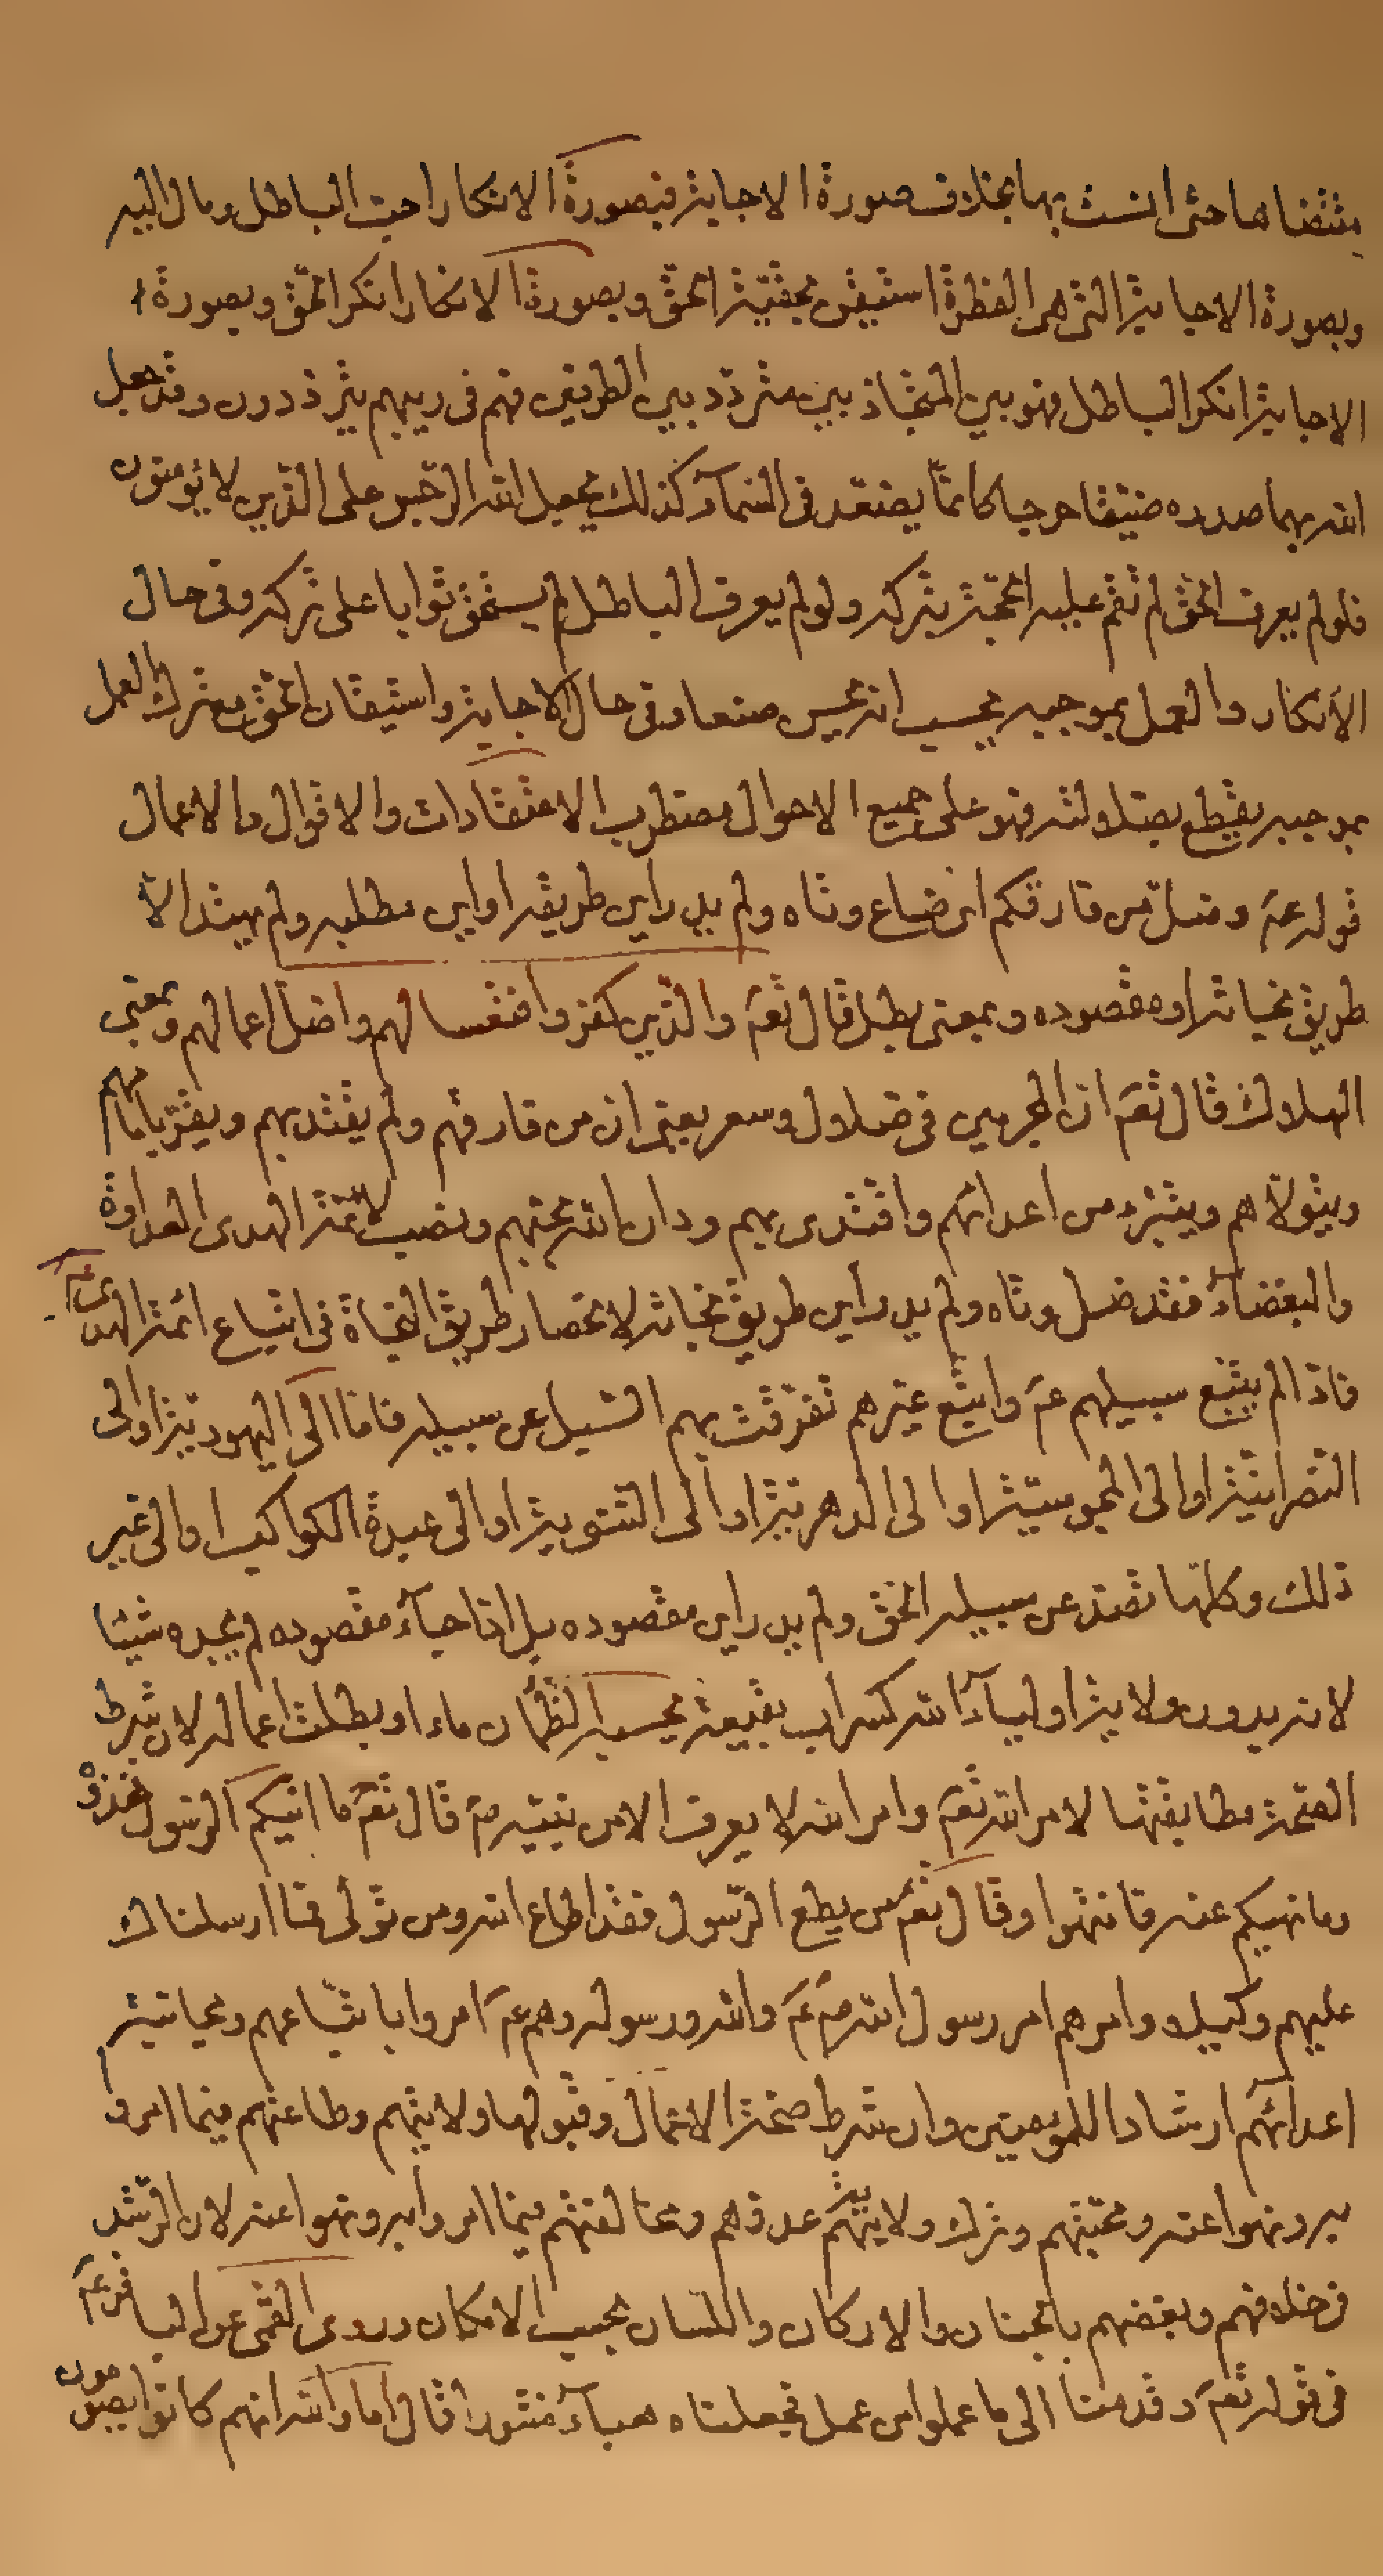 بمقتضاها حتى انست بها بخلاف صورة الاجابة فبصورة الانكار احب الباطل ومال اليه
وبصورة الاجابة التى هى الفطرة استيقن بحقية الحق وبصورة الانكار انكر الحق وبصورة
الاجابة انكر الباطل فهو بين المتجاذبين متردد بين الطريقين فهم فى ريبهم يترددون وقد جعل
الله بهما صدره ضيقا حرجا كانما يصعد فى السماء كذلك يجعل الله الرجس على الذين لا يؤمنون
فلو لم يعرف الحق لم تقم عليه الحجة بتركه ولو لم يعرف الباطل لم يستحق ثوابا على تركه وفى حال
الانكار والعمل بموجبه يحسب انه يحسن صنعا وفى حال الاجابة واستيقان الحق مع ترك العمل
بموجبه يقطع بضلالته فهو على جميع الاحوال مضطرب الاعتقادات والاقوال والاعمال
قوله عم وضل من فارقكم اى ضاع وتاه ولم يدر اين طريقه او اين مطلبه ولم يهتد الا
طريق نجاته او مقصوده وبمعنى بطل قال تعم والذين كفروا فتعسا لهم واضل اعمالهم وبمعنى
الهلاك قال تعم ان المجرمين فى ضلال وسعر يعنى ان من فارقهم ولم يقتد بهم ويقر بامامتهم
ويتولاهم ويتبرء من اعدائهم واقتدى بهم ودان الله بحبهم ونصب لائمة الهدى العداوة
والبغضاء فقد ضل وتاه ولم يدر اين طريق نجاته لانحصار طريق النجاة فى اتباع ائمة الهدى عم
فاذا لم يتبع سبيلهم عم واتبع غيرهم تفرقت بهم السبل عن سبيله فاما الى اليهودية او الى
النصرانية او الى المجوسية او الى الدهرية او الى الثنوية او الى عبدة الكواكب او الى غير
ذلك وكلها تصد عن سبيل الحق ولم يدر اين مقصوده بل اذا جاء مقصوده لم يجده شيئا
لانه يريد ولاية اولياء الله كسراب بقيعة يحسبه الظمان ماء او بطلت اعماله لان شرط
الصحة مطابقتها لامر الله تعم وامر الله لا يعرف الا من نبيه صم قال تعم ما اتيكم الرسول فخذوه
وما نهيكم عنه فانتهوا وقال تعم من يطع الرسول فقد اطاع الله ومن تولى فما ارسلناك
عليهم وكيلا وامرهم امر رسول الله صم عم والله ورسوله وهم عم امروا باتباعهم ومجانبة
اعدائهم ارشادا للمؤمنين وان شرط صحة الاعمال وقبولها ولايتهم وطاعتهم فيما امروا
به ونهوا عنه ومحبتهم وترك ولاية عدوهم ومخالفتهم فيما امروا به ونهوا عنه لان الرشد
فى خلافهم وبغضهم بالجنان والاركان واللسان بحسب الامكان وروى القمى عن الباقر عم
فى قوله تعم وقدمنا الى ما عملوا من عمل فجعلناه هباء منثورا قال اما والله انهم كانوا يصومون